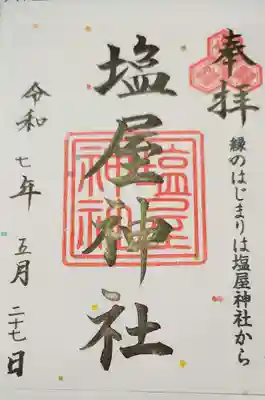 奉拝
縁のはじまりは塩屋神社から
塩屋神社
塩屋神社
令和七年五月二十七日